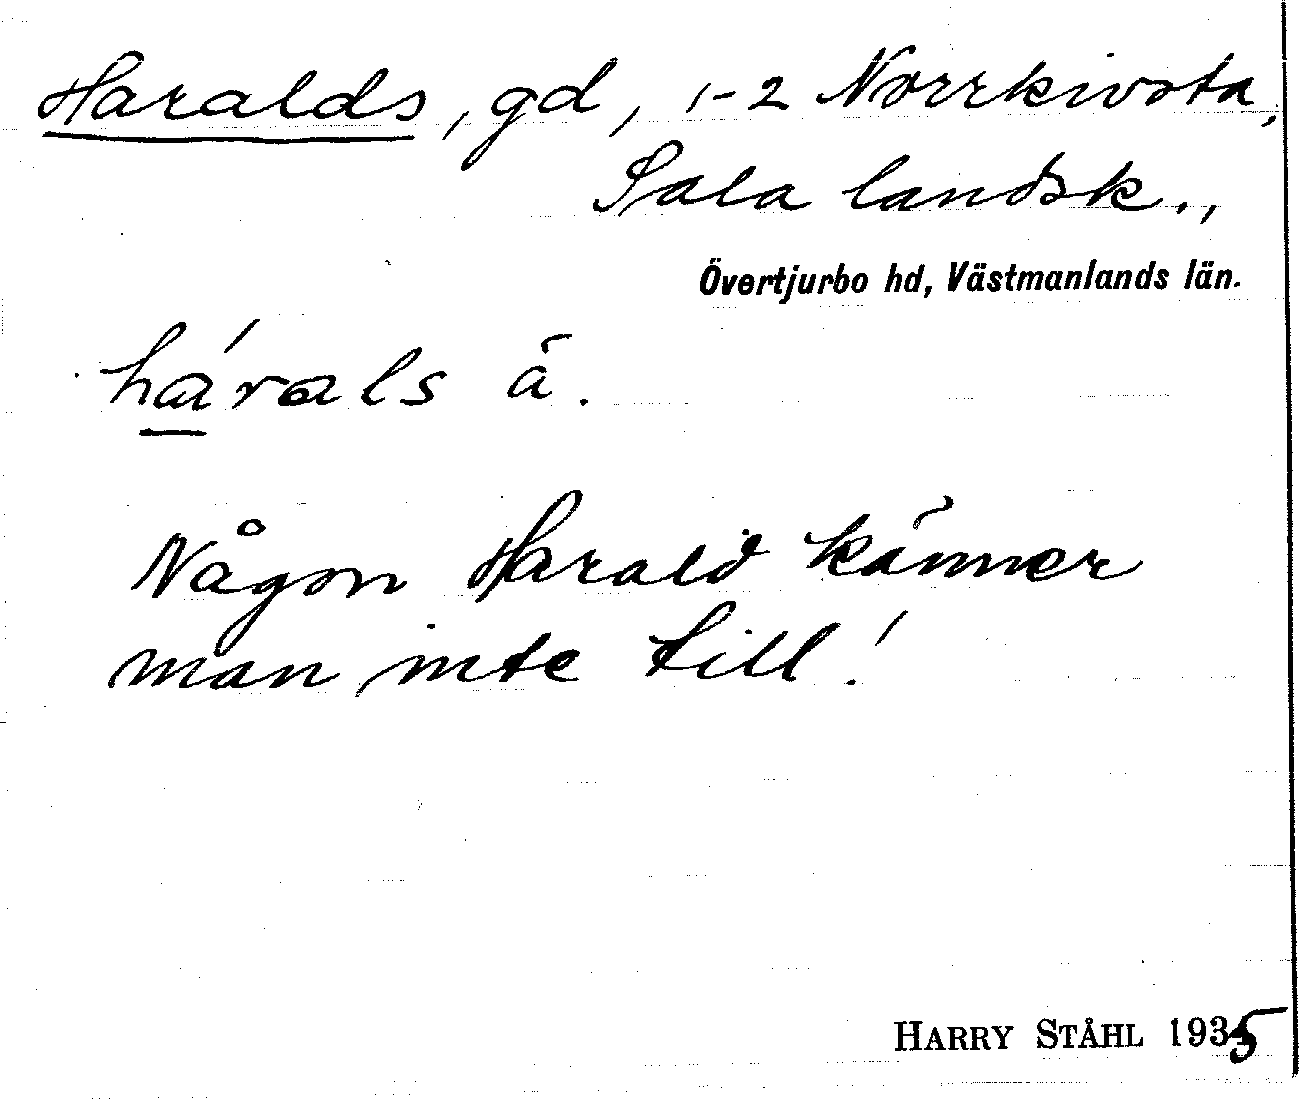 Haralds, gd, 1-2 Norrkivsta,
Sala landsk.,
Övertjurbo hd, Västmanlands län.
hárals ä.
Någon Harald känner
man inte till!
HARRY STÅHL 1935